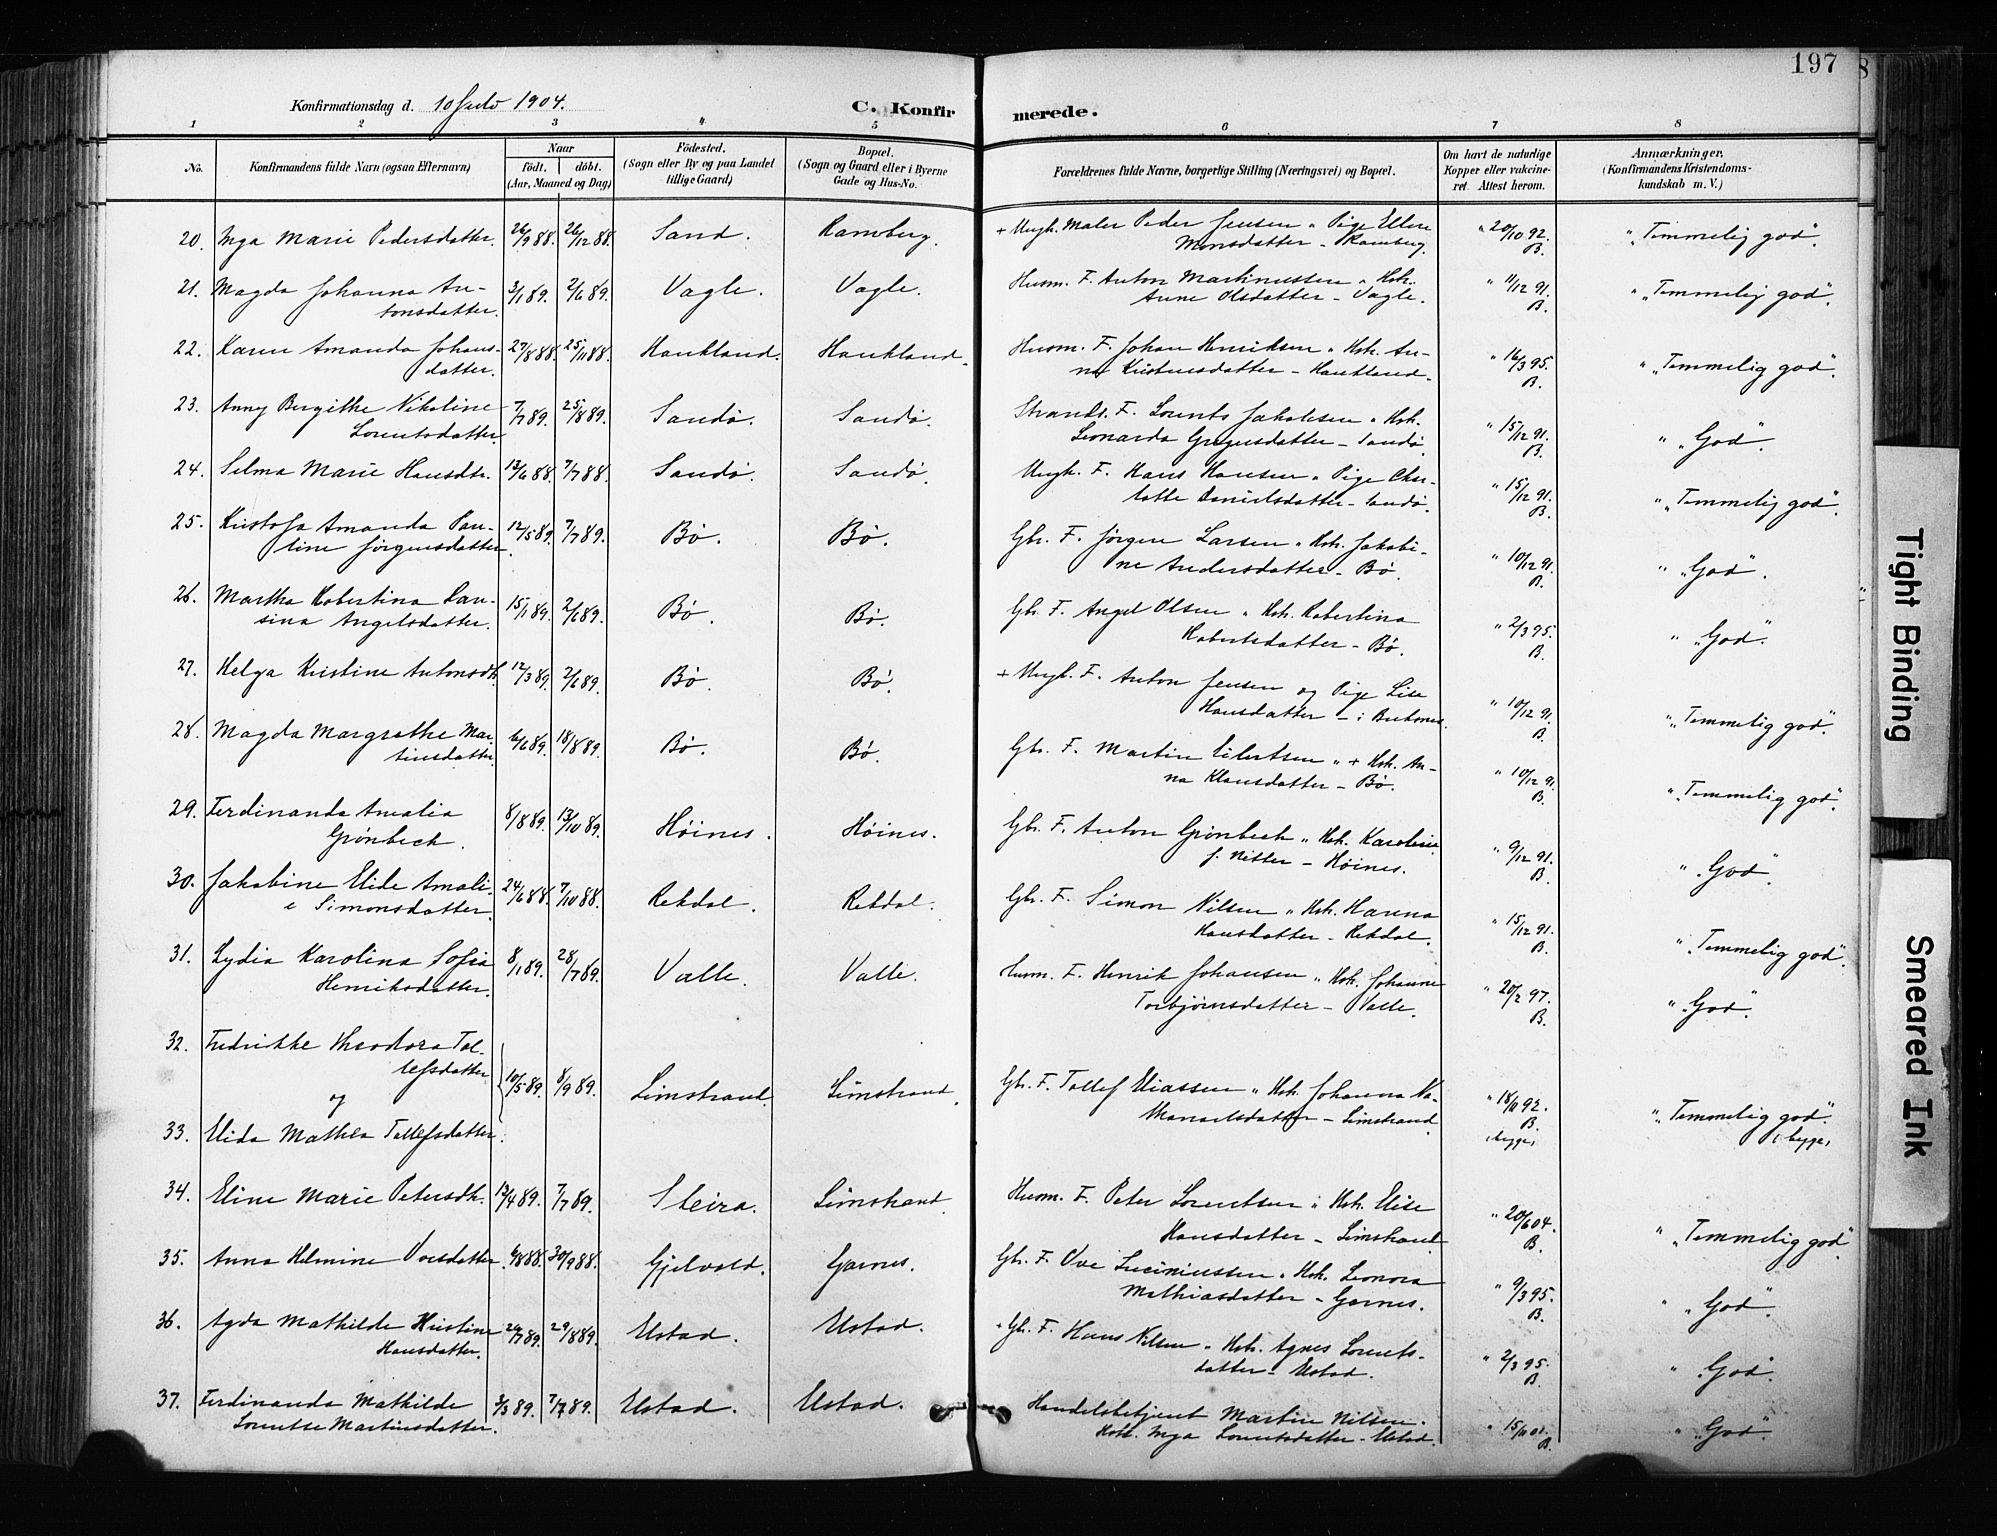 197
Konfirmationsdag d. 10 Juli 1904.
C. Konfirmerede.
1 2 3 4 5 6 7 8
No. Konfirmandens fulde Navn (ogsaa Efternavn) Naar Födt. döbt. (Aar, Maaned og Dag) Födested. (Sogn eller By og paa Landet tillige Gaard) Bopæl. (Sogn og Gaard eller i Byerne Gade og Hus-No. Forældrenes fulde Navne, borgerlige Stilling (Næringsvei) og Bopæl. Om havt de naturlige Kopper eller vakcineret. Attest herom. Anmærkninger. (Konfirmandens Kristendomskundskab m. V.)
20. Inga Marie Pedersdatter. 26/9 88. 26/12 88. Sand. Ramberg. + Ungk. Maler Peder Jensen " Pige Ellen " 20/10 92. " "Temmelig god".
Monsdatter - Ramberg. B.
21. Magda Johanna An- 3/1 89. 2/6 89. Vagle. Vagle. Husm. F. Anton Martinussen " Hst. " 11/12 91. " "Temmelig god".
tonsdatter. Anne Olsdatter - Vagle. B.
22. Karen Amanda Johans- 27/8 88. 25/11 88. Haukland. Haukland. Husm. F. Johan Henriksen " Hst. An- " 16/3 95. " "Temmelig god".
datter. na Kristensdatter - Haukland. B.
23. Anny Bergithe Nikoline 7/7 89. 25/8 89. Sandø. Sandø. Strands. F. Lorents Jakobsen " Hst. " 15/12 91. " "God".
Lorentsdatter. Leonarda Gregusdatter - Sandø. B.
24. Selma Marie Hansdtr. 13/6 88. 7/7 88. Sandø. Sandø. Ungk. F. Hans Hansen " Pige Char- " 15/12 91. "Temmelig god".
lotte Danielsdatter - Sandø. B.
25. Kristofa Amanda Pau- 12/5 89. 7/7 89. Bø. Bø. Gbr. F. Jørgen Larsen " Hst. Jakobi- " 10/12 91. " "God".
line Jørgensdatter. ne Andersdatter - Bø. B.
26. Martha Robertina Han- 15/1 89. 2/6 89. Bø. Bø. Gbr. F. Angel Olsen " Hst. Robertina " 2/3 95. " "God".
sina Angelsdatter. Robertsdatter - Bø. B.
27. Helga Kristine Antonsdt. 12/3 89. 2/6 89. Bø. Bø. + Ungk. F. Anton Jensen og Pige Lise " 10/12 91. "Temmelig god".
Hansdatter - i B.
28. Magda Margrethe Mar- 6/6 89. 18/8 89. Bø. Bø. Gbr. F. Martin Eilertsen " + Hst. An- " 10/12 91. "Temmelig god".
tinsdatter. na Klausdatter - Bø. B.
29. Ferdinanda Amalia 8/8 89. 13/10 89. Høines. Høines. Gbr. F. Anton Grønbech " Hst. Karoline " 9/12 91. " "God".
Grønbech. f. Nitter - Høines. B.
30. Jakobine Elide Amali- 24/6 88. 7/10 88. Rekdal. Rekdal. Gbr. F. Simon Nilsen " Hst. Hanna " 15/12 91. "Temmelig god".
e Simonsdatter. Hansdatter - Rekdal. B.
31. Lydia Karolina Sofia 8/1 89. 28/7 89. Valle. Valle. Husm. F. Henrik Johansen " Hst. Johanne " 20/2 97. " "God".
Henriksdatter. Torbjørnsdatter - Valle. B.
32. Fredrikke Theodora Tol-
lefsdatter 10/5 89. 8/9 89. Limstrand. Limstrand. Gbr. F. Tollef Eliassen " Hst. Johanna Na- " 18/11 92. "Temmelig god".
og thanaelsdatter - Limstrand. B.
33. Elida Mathea Tollefsdatter. (begge) (begge)
34. Eline Marie Petersdtr. 13/4 89. 7/7 89. Steira. Limstrand. Husm. F. Peter Lorentsen " Hst. Elise " 20/6 04. " "Temmelig god".
Hansdatter - Limstrand. B.
35. Anna Helmine Ovesdatter. 6/8 88. 30/9 88. Gjelvold. Garnes. Gbr. F. Ove Luciniussen " Hst. Leonora " 9/3 95. " "God".
Mathiasdatter - Garnes. B.
36. Agda Mathilde Kristine 20/7 89. 29/8 89. Ustad. Ustad. + Gbr. F. Hans Nilsen " Hst. Agnes Lorents- " 2/3 95. " "God".
Hansdatter. datter - Ustad. B.
37. Ferdinanda Mathilde 3/3 89. 7/7 89. Ustad. Ustad. Handelsbetjent Martin Nilsen. " 15/11 01. " "God".
Lorentse Martinsdatter. Hst. Inga Lorentsdatter - Ustad. B.
Tight Binding
Smeared Ink